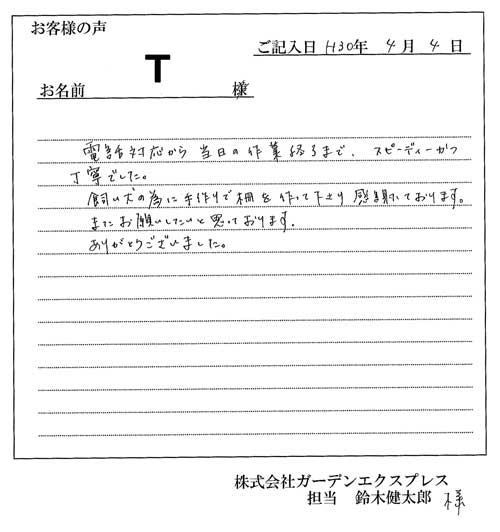 お客様の声
ご記入日 H30年 4月 4日
お名前 T 様
電話対応から当日の作業終了まで、スピーディーかつ
丁寧でした。
飼い犬の為に手作りで柵を作って下さり感謝しております。
またお願いしたいと思っております。
ありがとうございました。
株式会社ガーデンエクスプレス
担当 鈴木健太郎 様